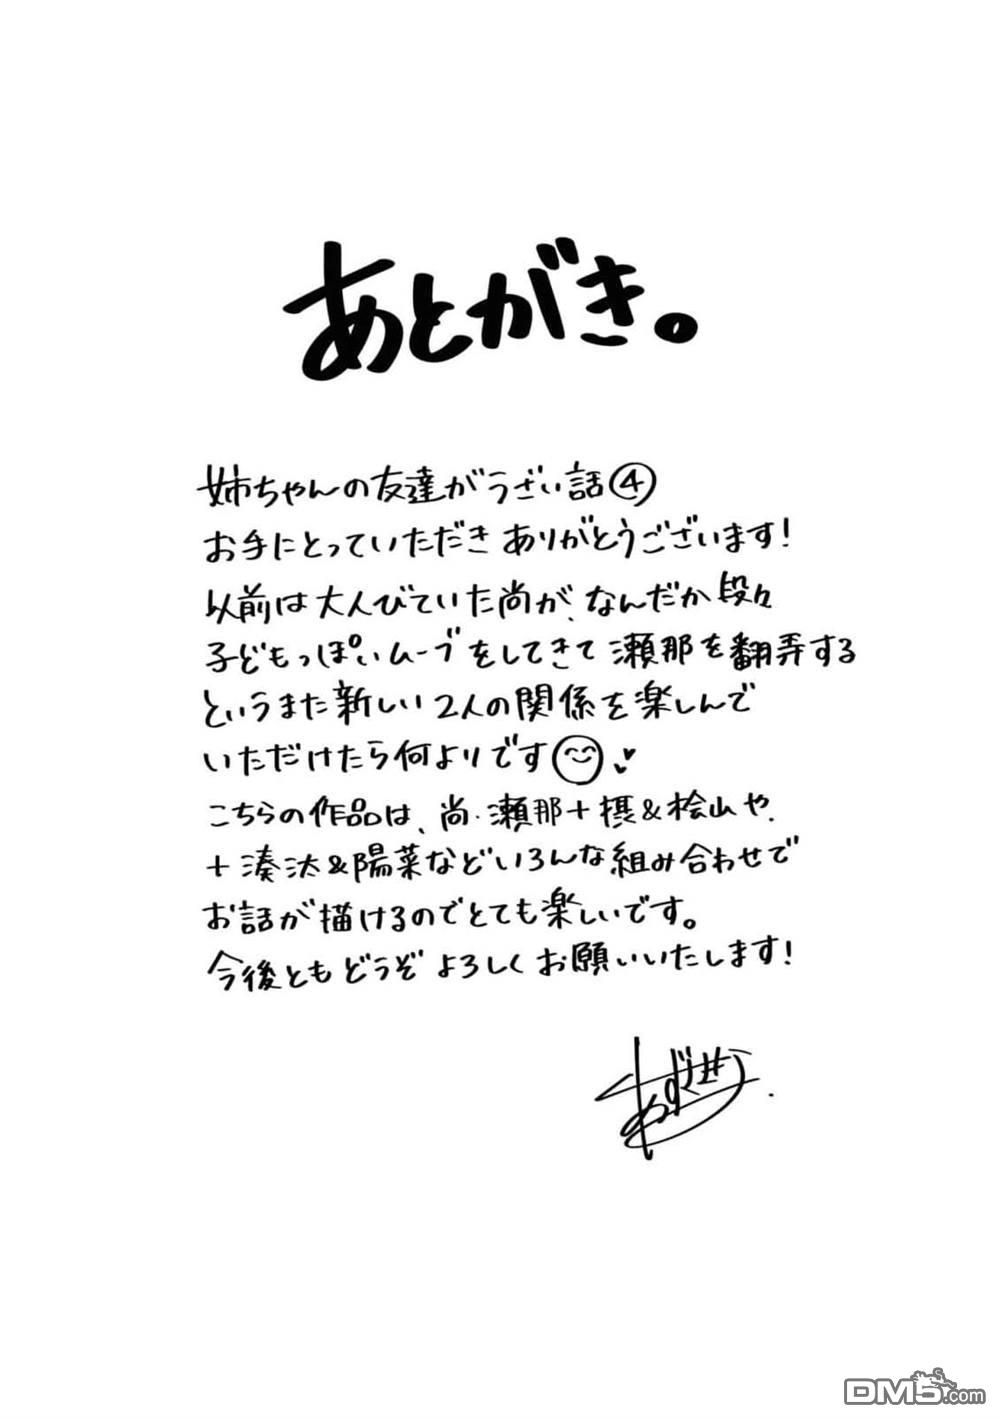 あとがき。
姉ちゃんの友達がうざい話④
お手にとっていただき ありがとうございます!
以前は大人びていた尚が、なんだか段々
子どもっぽいムーブをしてきて 瀬那を翻弄する
というまた新しい2人の関係を楽しんで
いただけたら何よりです😊♥
こちらの作品は、尚・瀬那+摂&桧山や、
+湊汰&陽菜などいろんな組み合わせで
お話が描けるのでとても楽しいです。
今後ともどうぞ よろしくお願いいたします!
DM5.com